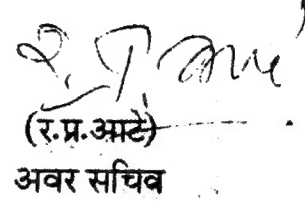 (र.प्र.आटे)
अवर सचिव